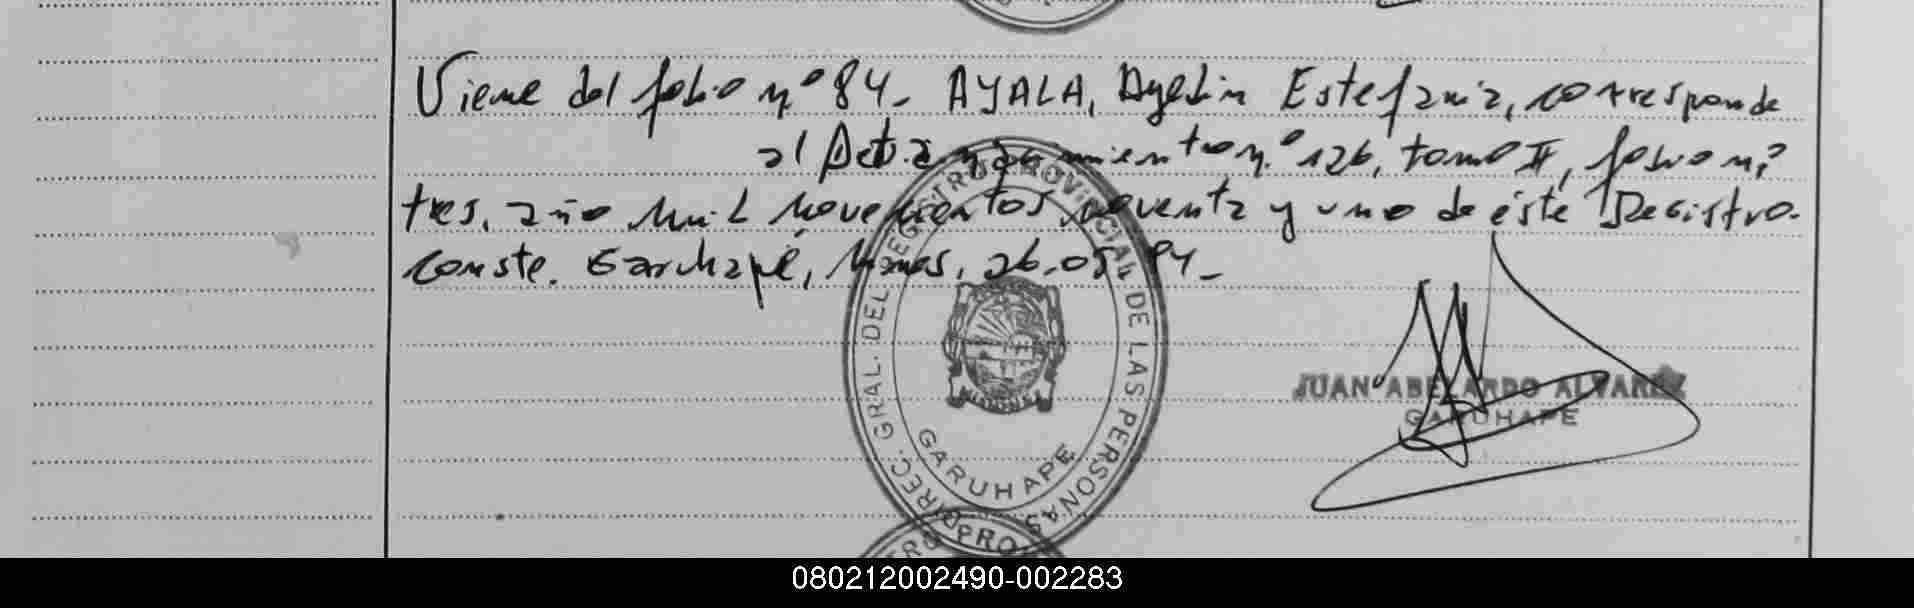 Viene del folio nº 84_ AYALA, Ayelin Estefania, corresponde
al Acta nacimiento nº 126, tomo II, folio nº
tres, año mil novecientos noventa y uno de éste Registro.
Conste. Garuhapé, Mnes, 26.05.94_
DIREC. GRAL. DEL REGISTRO PROVINCIAL DE LAS PERSONAS
MISIONES
JUAN ABELARDO ALVAREZ
GARUHAPE
GARUHAPE
PRO
080212002490-002283